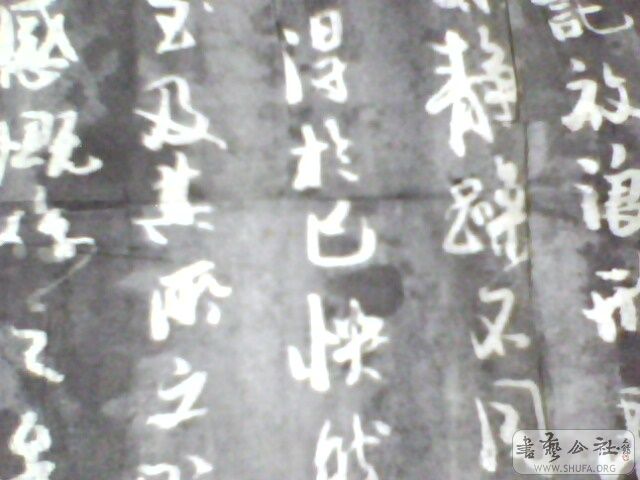 託放浪形
靜躁不同
得於己怏然
至及其所之
感慨係之矣
書藝公社
WWW.SHUFA.ORG